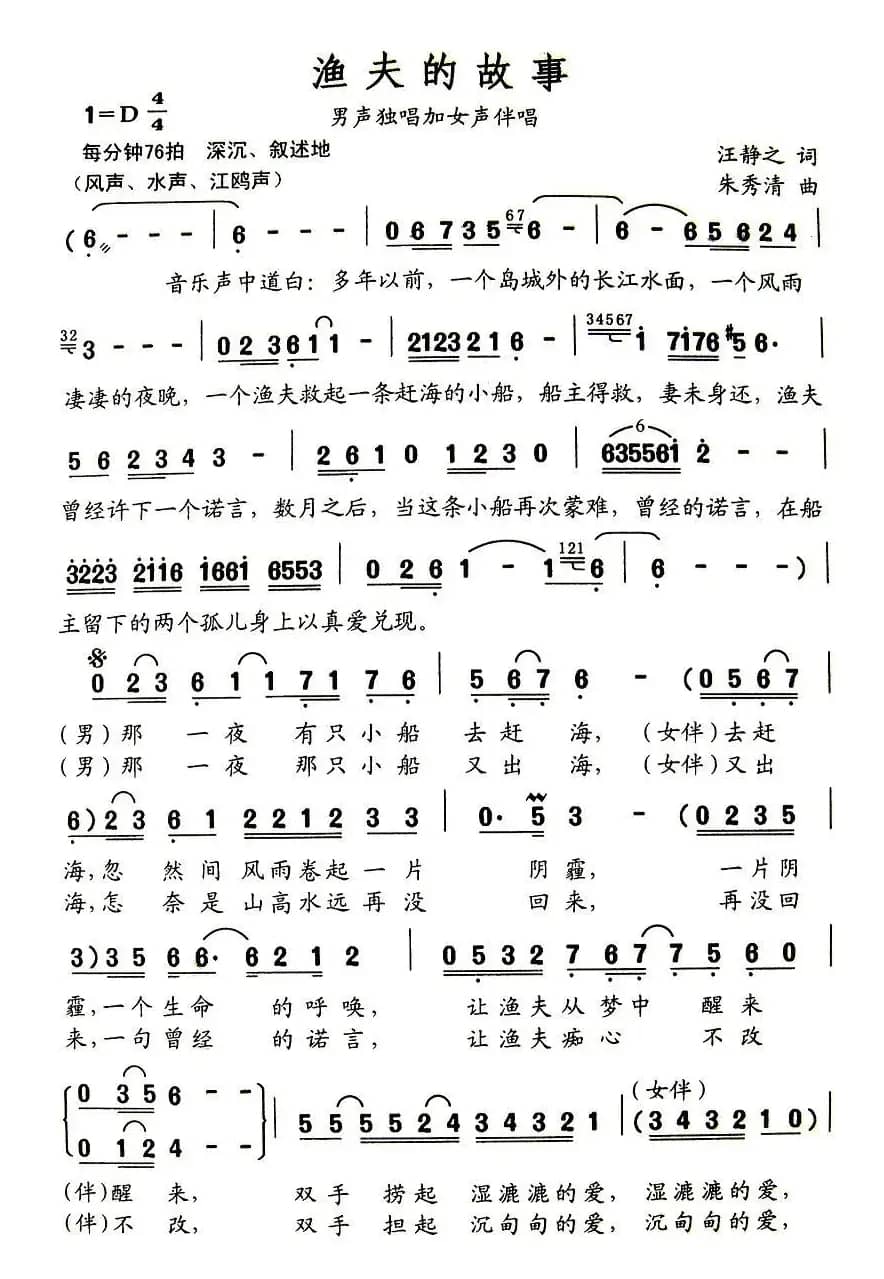 渔夫的故事
1=D 4/4
男声独唱加女声伴唱
每分钟76拍 深沉、叙述地
汪静之 词
(风声、水声、江鸥声)
朱秀清 曲
(6 - - - | 6 - - - | 0 6 7 3 5 67 6 - | 6 - 6 5 6 2 4 |
音乐声中道白:多年以前,一个岛城外的长江水面,一个风雨
32 3 - - - | 0 2 3 6 1 1 - | 2 1 2 3 2 1 6 - | 34567 1 7 1 7 6 #5 6· |
凄凄的夜晚,一个渔夫救起一条赶海的小船,船主得救,妻未身还,渔夫
5 6 2 3 4 3 - | 2 6 1 0 1 2 3 0 | 6 3 5 5 6 1 2 - - |
6
曾经许下一个诺言,数月之后,当这条小船再次蒙难,曾经的诺言,在船
3 2 2 3 2 1 1 6 1 6 6 1 6 5 5 3 | 0 2 6 1 - | - 1 121 6 | 6 - - ) |
主留下的两个孤儿身上以真爱兑现。
0 2 3 6 1 1 7 1 7 6 | 5 6 7 6 - (0 5 6 7 |
(男)那 一夜 有只小船 去赶 海,(女伴)去赶
(男)那 一夜 那只小船 又出 海,(女伴)又出
6) 2 3 6 1 2 2 1 2 3 3 | 0· 5 3 - (0 2 3 5 |
海,忽 然间 风雨卷起一片 阴霾, 一片阴
海,怎 奈是 山高水远再没 回来, 再没回
3) 3 5 6 6· 6 2 1 2 | 0 5 3 2 7 6 7 7 5 6 0 |
霾,一个生命 的呼唤, 让渔夫从梦中 醒来
来,一句曾经 的诺言, 让渔夫痴心 不改
0 3 5 6 - -
0 1 2 4 - - | 5 5 5 5 2 4 3 4 3 2 1 | (3 4 3 2 1 0) |
(女伴)
(伴)醒 来, 双手 捞起 湿漉漉的爱,湿漉漉的爱,
(伴)不 改, 双手 担起 沉甸甸的爱,沉甸甸的爱,